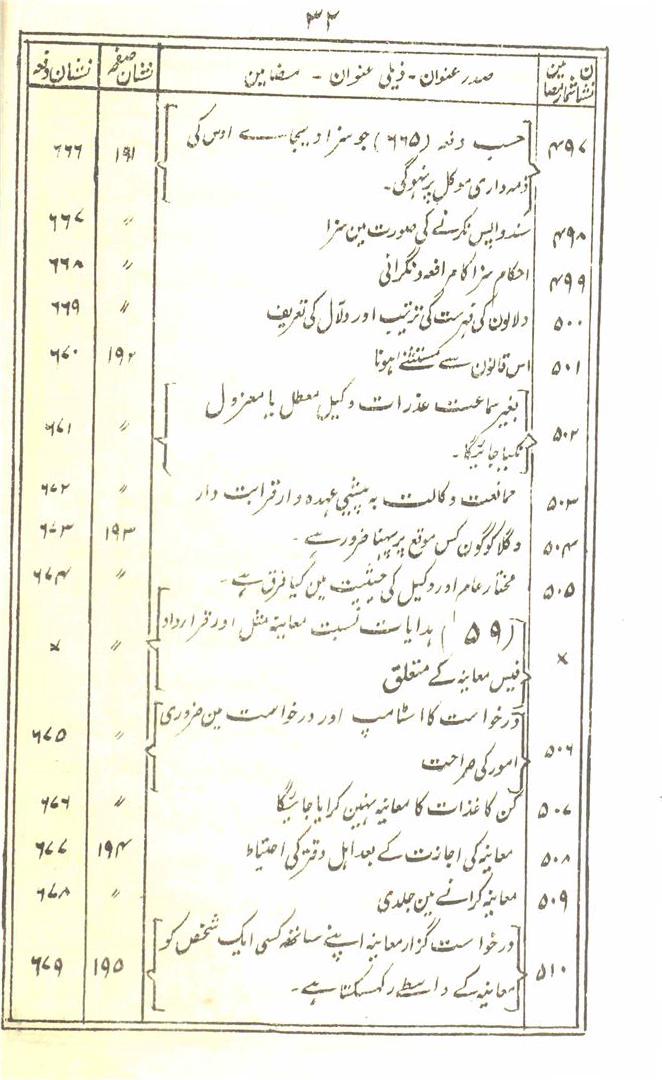 ۳۲
نشان شمار مضامین صدر عنوان - ذیلی عنوان - مضامین نشان صفحہ نشان دفعہ
۴۹۷ حسب دفعہ (۶۶۵) جو سزا دیجاے اوس کی ۱۹۱ ۶۶۶
ذمہ داری موکل پر نہوگی۔
۴۹۸ سند واپس نکرنے کی صورت مین سزا 〃 ۶۶۷
۴۹۹ احکام سزا کا مرافعہ و نگرانی 〃 ۶۶۸
۵۰۰ دلالون کی فہرست کی ترتیب اور دلّال کی تعریف 〃 ۶۶۹
۵۰۱ اس قانون سے مستثنےٰ ہونا ۱۹۲ ۶۷۰
۵۰۲ بغیر سماعت عذرات وکیل معطل یا معزول 〃 ۶۷۱
نکیا جائیگا۔
۵۰۳ ممانعت وکالت بہ پیشی عہدہ دار قرابت دار 〃 ۶۷۲
۵۰۴ وکلا کو گون کس موقع پر پہننا ضرور ہے۔ ۱۹۳ ۶۷۳
۵۰۵ مختار عام اور وکیل کی حیثیت مین کیا فرق ہے۔ 〃 ۶۷۴
× (۵۹) ہدایات نسبت معاینہ مثل اور قرارداد 〃 ×
فیس معاینہ کے متعلق
۵۰۶ درخواست کا اسٹامپ اور درخواست مین ضروری 〃 ۶۷۵
امور کی صراحت
۵۰۷ کن کاغذات کا معاینہ نہین کرایا جائیگا 〃 ۶۷۶
۵۰۸ معاینہ کی اجازت کے بعد اہل دفتر کی احتیاط ۱۹۴ ۶۷۷
۵۰۹ معاینہ کرانے مین جلدی 〃 ۶۷۸
۵۱۰ درخواست گزار معاینہ اپنے ساتھہ کسی ایک شخص کو ۱۹۵ ۶۷۹
معاینہ کے واسطے رکہہ سکتا ہے۔